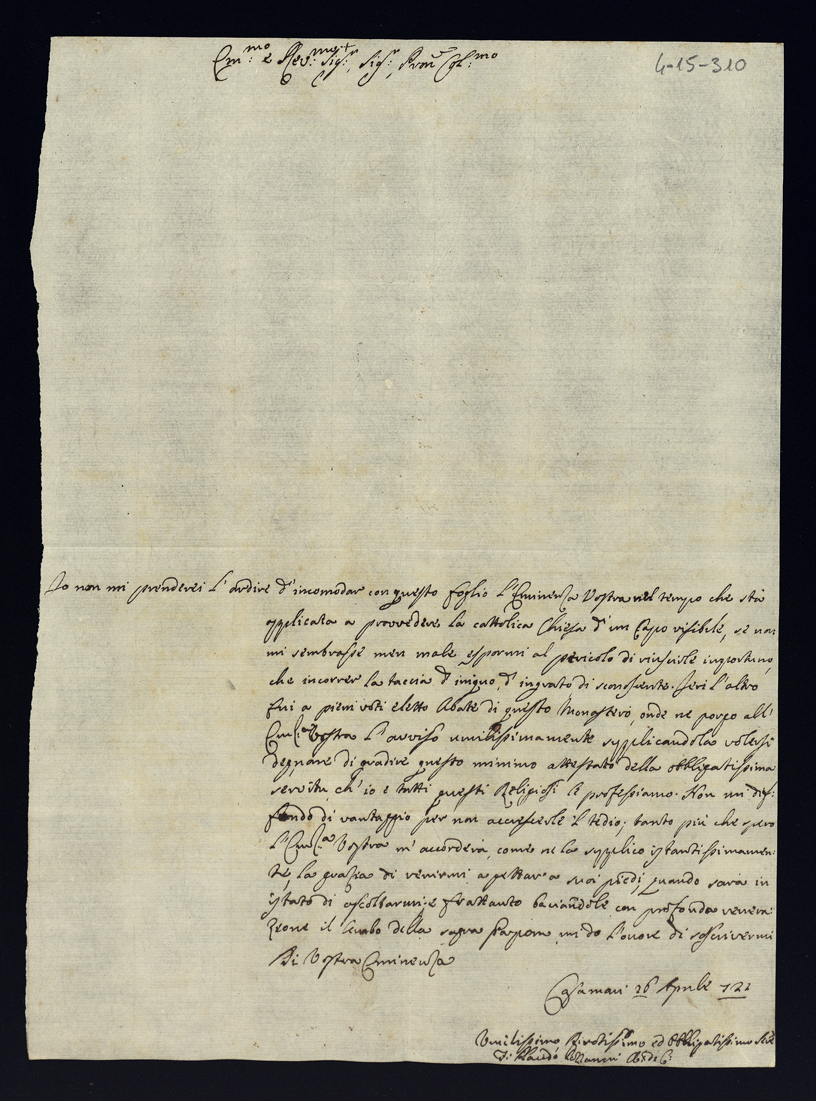 Em:mo e Rev:mo Sig:r, Sig:r, Pron Col:mo
4-15-310
Io non mi prenderei l'ardire d'incomodar con questo foglio l'Eminenza Vostra nel tempo che stà
applicata a provvedere la cattolica Chiesa d'un Capo visibile, se non
mi sembrasse men male espormi al pericolo di riuscirle inportuno,
che incorrer la taccia d' d'ingrato di sconoscente. Ieri l'altro
fui a pieni voti eletto Abate di questo Monastero, onde ne porgo all'
Em:za Vostra l'avviso umilissimamente supplicandola volersi
degnare di gradire questo minimo attestato della obbligatissima
servitù ch'io e tutti questi Religiosi le professiamo. Non mi dif-
fondo di vantaggio per non accrescerle il tedio; tanto più che spero
l'Em:za Vostra m'accorderà, come ne la supplico istantissimamen-
te, la grazia di venirmi a gettar a suoi piedi, quando sarà in
istato di ascoltarmi; e frattanto baciandole con profonda venera-
zione il lembo della sagra Porpora mi dò l'onore di soscrivermi
Di Vostra Eminenza
Casamari 26 Aprile 721
Umilissimo Divotissimo ed Obbligatissimo